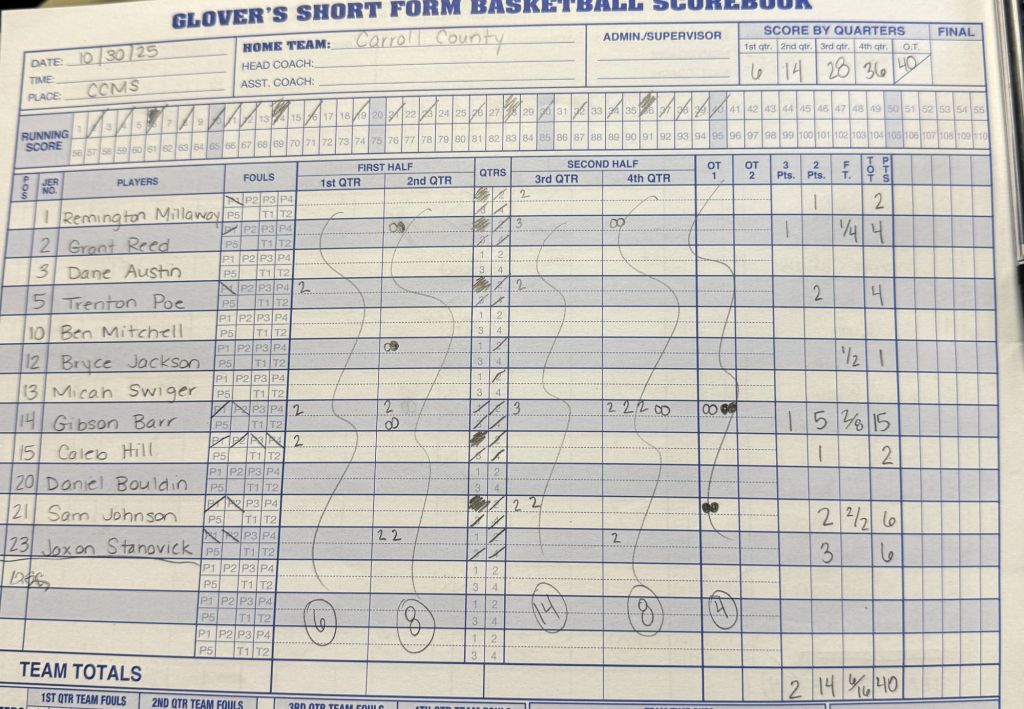 GLOVER'S SHORT FORM BASKETBALL SCOREBOOK
DATE: 10/30/25
TIME:
PLACE: CCMS
HOME TEAM: Carroll County
HEAD COACH:
ASST. COACH:
ADMIN./SUPERVISOR
SCORE BY QUARTERS FINAL
1st qtr. 2nd qtr. 3rd qtr. 4th qtr. O.T.
6 14 28 36 40
RUNNING SCORE
1 2 3 4 5 6 7 8 9 10 11 12 13 14 15 16 17 18 19 20 21 22 23 24 25 26 27 28 29 30 31 32 33 34 35 36 37 38 39 40 41 42 43 44 45 46 47 48 49 50 51 52 53 54 55
56 57 58 59 60 61 62 63 64 65 66 67 68 69 70 71 72 73 74 75 76 77 78 79 80 81 82 83 84 85 86 87 88 89 90 91 92 93 94 95 96 97 98 99 100 101 102 103 104 105 106 107 108 109 110
POS JER NO. PLAYERS FOULS FIRST HALF 1st QTR 2nd QTR QTRS SECOND HALF 3rd QTR 4th QTR OT 1 OT 2 3 Pts. 2 Pts. F T. TOT PTS
1 Remington Millaway P1 P2 P3 P4 P5 T1 T2 2 1 2
2 Grant Reed P1 P2 P3 P4 P5 T1 T2 3 1 1/4 4
3 Dane Austin P1 P2 P3 P4 P5 T1 T2 1 2 3 4
5 Trenton Poe P1 P2 P3 P4 P5 T1 T2 2 2 2 4
10 Ben Mitchell P1 P2 P3 P4 P5 T1 T2 1 2 3 4
12 Bryce Jackson P1 P2 P3 P4 P5 T1 T2 1 2 3 4 1/2 1
13 Micah Swiger P1 P2 P3 P4 P5 T1 T2 1 2 3 4
14 Gibson Barr P1 P2 P3 P4 P5 T1 T2 2 2 3 2 2 2 1 5 2/8 15
15 Caleb Hill P1 P2 P3 P4 P5 T1 T2 2 1 2
20 Daniel Bouldin P1 P2 P3 P4 P5 T1 T2 1 2 3 4
21 Sam Johnson P1 P2 P3 P4 P5 T1 T2 2 2 2 2/2 6
23 Jaxon Stanovick P1 P2 P3 P4 P5 T1 T2 2 2 2 3 6
P1 P2 P3 P4 P5 T1 T2 1 2 3 4
P1 P2 P3 P4 P5 T1 T2 6 8 1 2 3 4 14 8 4
P1 P2 P3 P4 P5 T1 T2 1 2 3 4
TEAM TOTALS 2 14 6/16 40
1ST QTR TEAM FOULS 2ND QTR TEAM FOULS 3RD QTR TEAM FOULS 4TH QTR TEAM FOULS